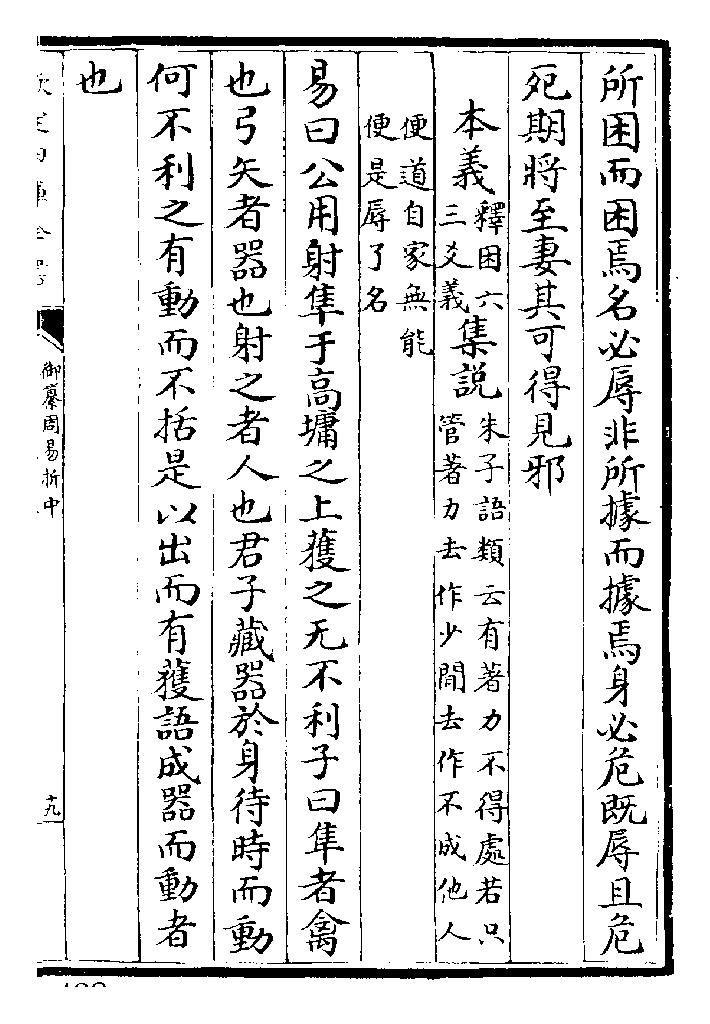 所困而困焉名必辱非所據而據焉身必危既辱且危
死期將至妻其可得見邪
本義釋困六三爻義集説朱子語類云有著力不得處若只管著力去作少間去作不成他人
便道自家無能便是辱了名
易曰公用射隼于高墉之上獲之无不利子曰隼者禽
也弓矢者器也射之者人也君子藏器於身待時而動
何不利之有動而不括是以出而有獲語成器而動者
也
御纂周易折中
十九